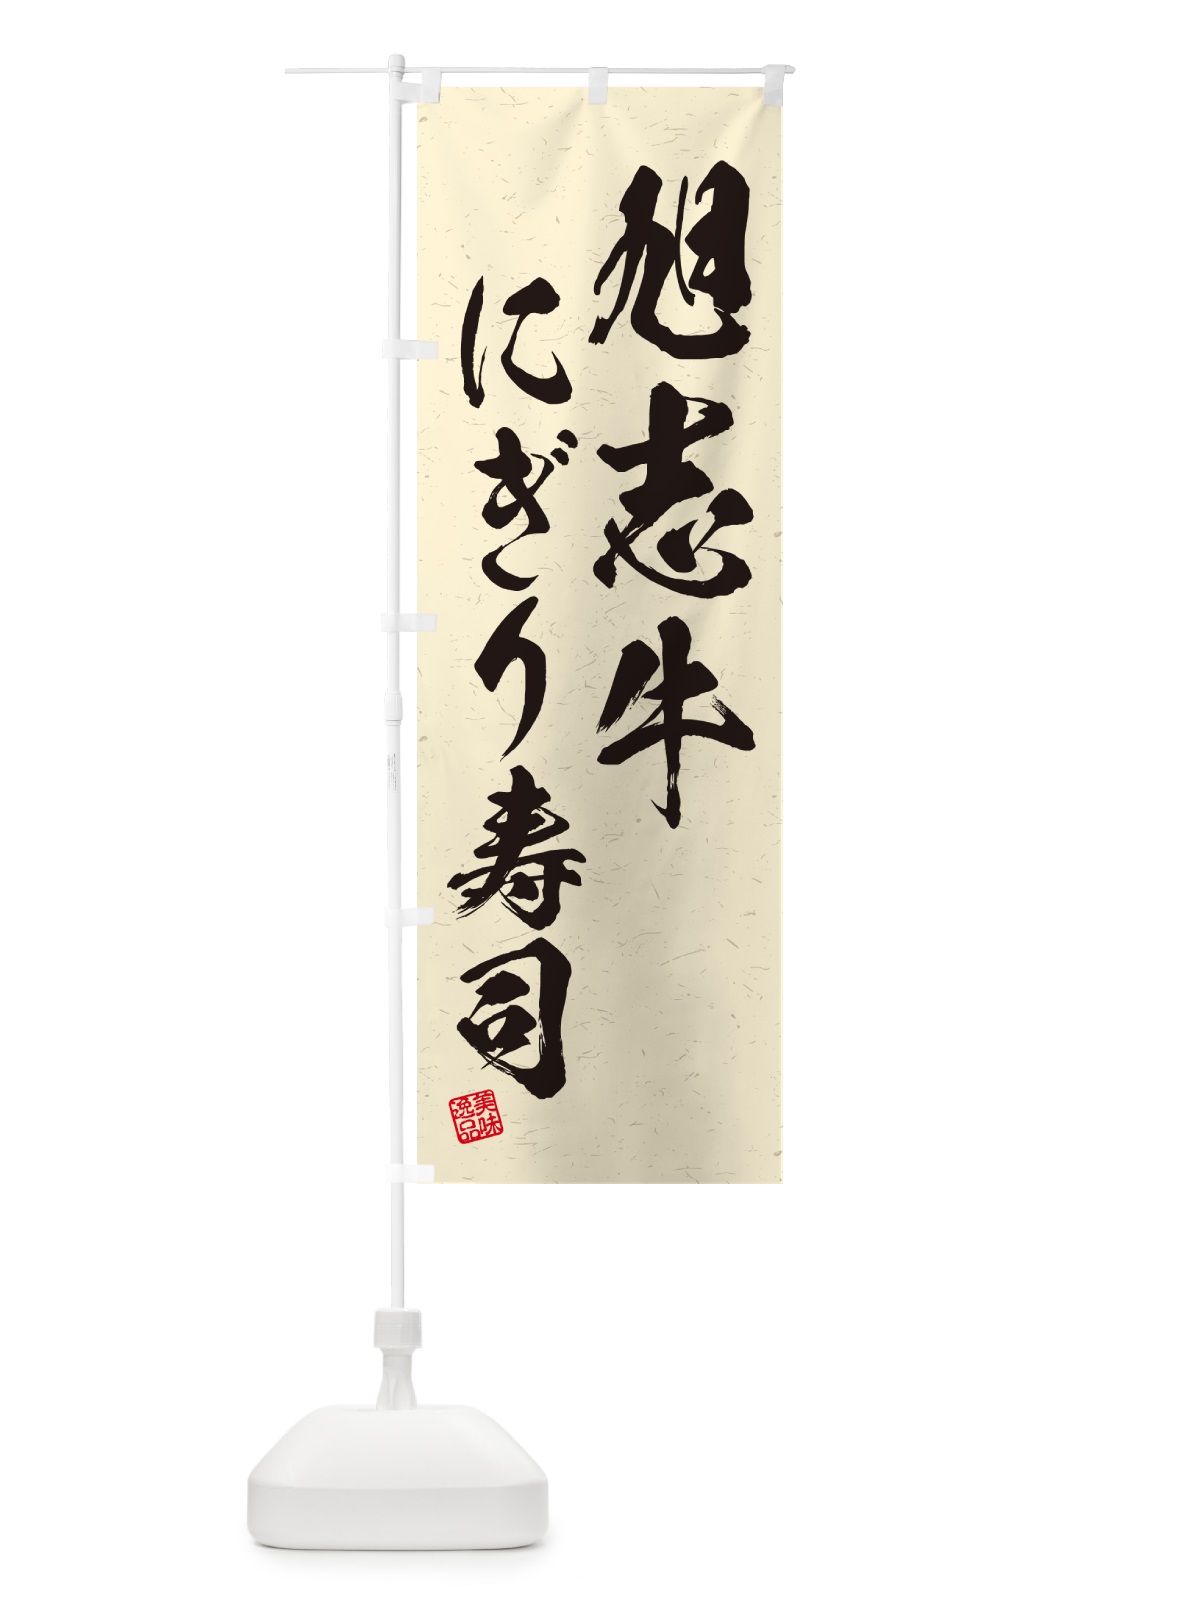 旭志牛
にぎり寿司
美味
逸品